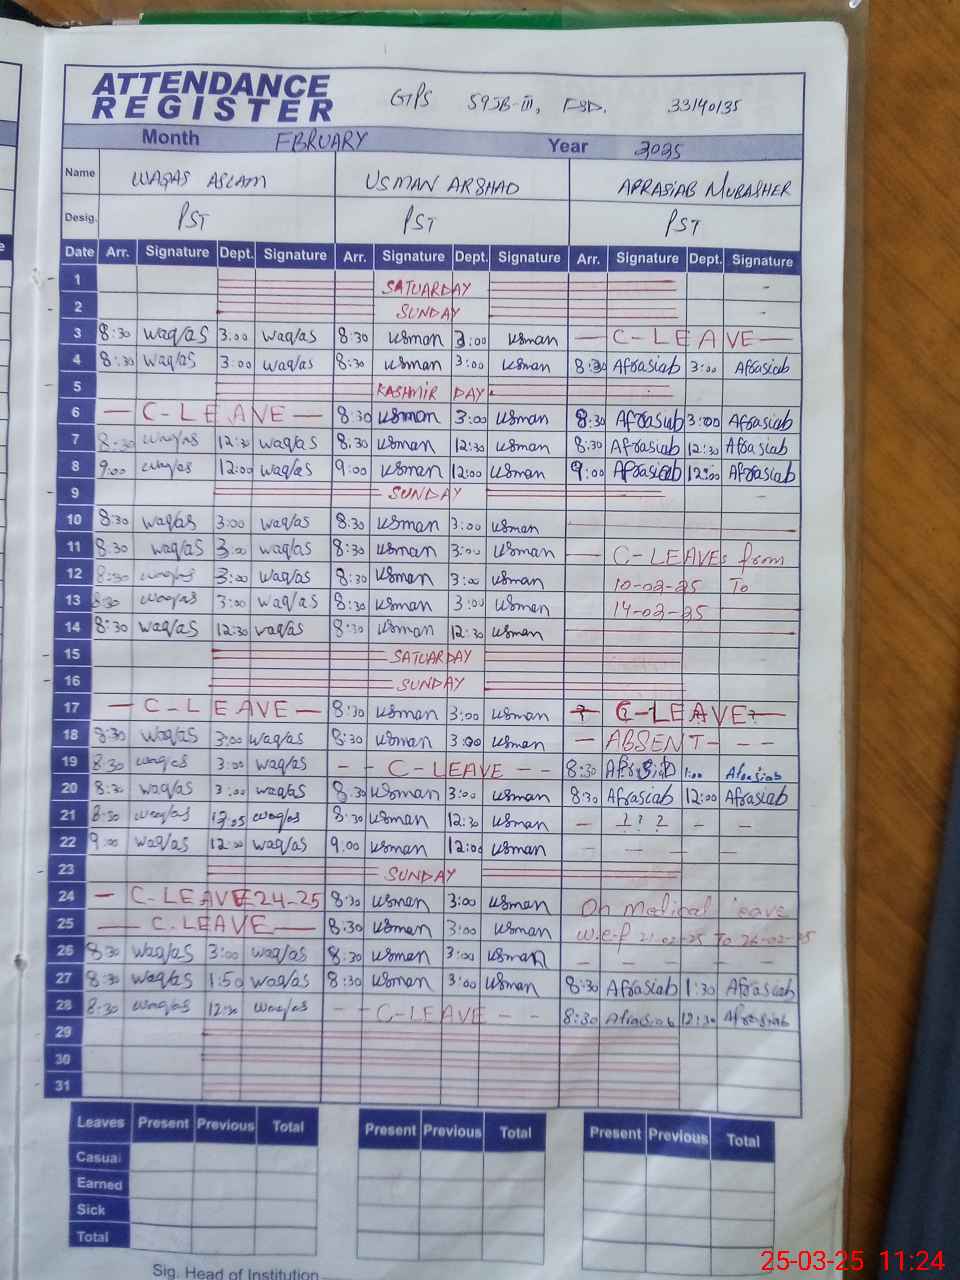 ATTENDANCE
REGISTER
GTPS 59JB-III, FSD. 33140135
Month FEBRUARY Year 2025
Name WAQAS ASLAM USMAN ARSHAD AFRASIAB MUBASHER
Desig. PST PST PST
Date Arr. Signature Dept. Signature Arr. Signature Dept. Signature Arr. Signature Dept. Signature
1 SATUARDAY
2 SUNDAY
3 8:30 waq/as 3:00 waq/as 8:30 usman 3:00 usman — C-LEAVE —
4 8:30 waq/as 3:00 waq/as 8:30 usman 3:00 usman 8:30 Afrasiab 3:00 Afrasiab
5 KASHMIR DAY
6 — C-LEAVE — 8:30 usman 3:00 usman 8:30 Afrasiab 3:00 Afrasiab
7 8:30 waq/as 12:30 waq/as 8:30 usman 12:30 usman 8:30 Afrasiab 12:30 Afrasiab
8 9:00 waq/as 12:00 waq/as 9:00 usman 12:00 usman 9:00 Afrasiab 12:00 Afrasiab
9 SUNDAY
10 8:30 waq/as 3:00 waq/as 8:30 usman 3:00 usman
11 8:30 waq/as 3:00 waq/as 8:30 usman 3:00 usman — C-LEAVEs from
12 8:30 waq/as 3:00 waq/as 8:30 usman 3:00 usman 10-02-25 To
13 8:30 waq/as 3:00 waq/as 8:30 usman 3:00 usman 14-02-25
14 8:30 waq/as 12:30 waq/as 8:30 usman 12:30 usman
15 SATUARDAY
16 SUNDAY
17 — C-LEAVE — 8:30 usman 3:00 usman — ? C-LEAVE ? —
18 8:30 waq/as 3:00 waq/as 8:30 usman 3:00 usman — ABSENT - - -
19 8:30 waq/as 3:00 waq/as - - C-LEAVE - - 8:30 Afrasiab 1:00 Afrasiab
20 8:30 waq/as 3:00 waq/as 8:30 usman 3:00 usman 8:30 Afrasiab 12:00 Afrasiab
21 8:30 waq/as 12:05 waq/as 8:30 usman 12:30 usman - ? ? ? - -
22 9:00 waq/as 12:00 waq/as 9:00 usman 12:00 usman - - - -
23 SUNDAY
24 — C-LEAVE 24-25 8:30 usman 3:00 usman On Medical leave
25 — C-LEAVE — 8:30 usman 3:00 usman w.e.f 21-02-25 To 26-02-25
26 8:30 waq/as 3:00 waq/as 8:30 usman 3:00 usman - - - - -
27 8:30 waq/as 1:50 waq/as 8:30 usman 3:00 usman 8:30 Afrasiab 1:30 Afrasiab
28 8:30 waq/as 12:30 waq/as - - C-LEAVE - - 8:30 Afrasiab 12:30 Afrasiab
29
30
31
Leaves Present Previous Total Present Previous Total Present Previous Total
Casual
Earned
Sick
Total
Sig. Head of Institution
25-03-25 11:24